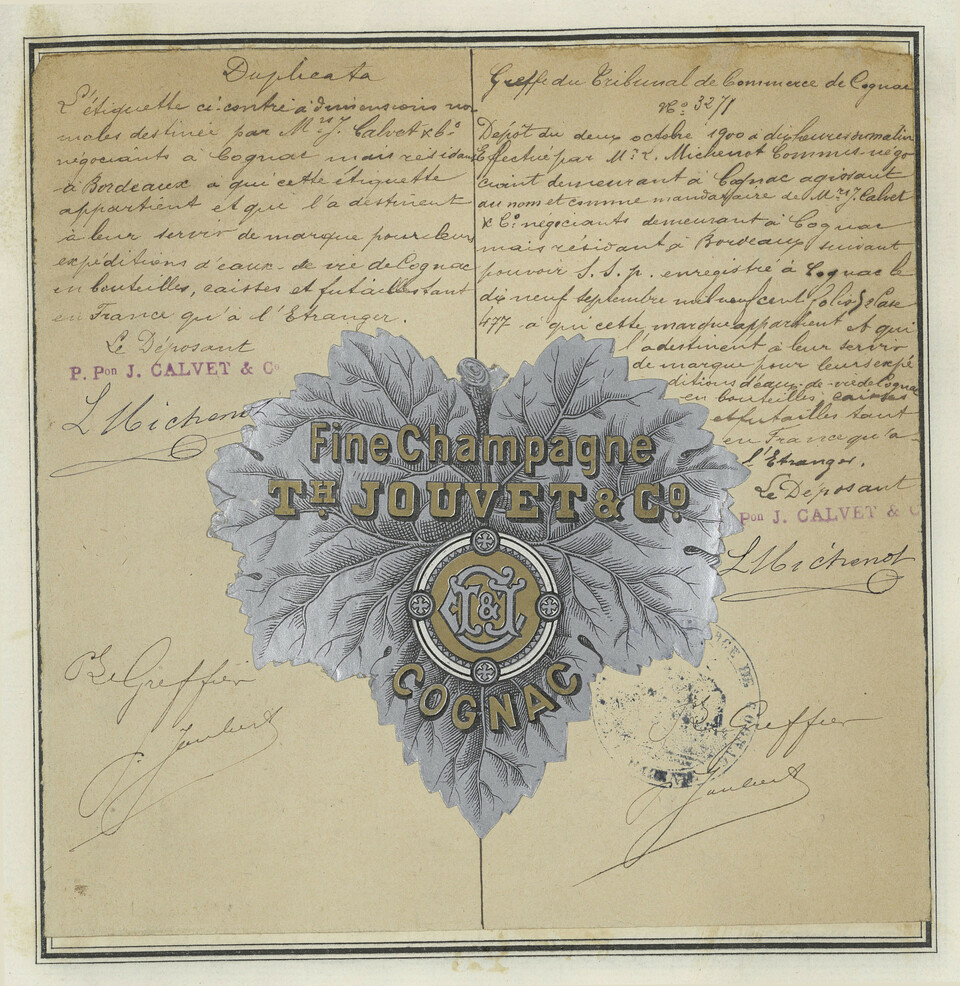 Duplicata
L'étiquette ci-contre à dimensions nor
males destinée par Mrs J. Calvet & Co
négociants à Cognac mais résidant
à Bordeaux à qui cette étiquette
appartient et qui l'a destinent
à leur servir de marque pour leurs
expéditions d'eaux-de-vie de Cognac
en bouteilles, caisses et futailles tant
en France qu'à l'Etranger.
Le Déposant
P. Pon J. CALVET & Co
L Michenot
Le Greffier
Joubert
Greffe du Tribunal de Commerce de Cognac
No 3271
Dépôt du deux octobre 1900 à dix heures du matin
Effectué par Mr L. Michenot Commis-négo
ciant demeurant à Cognac agissant
au nom et comme mandataire de Mrs J. Calvet
& Co négociants demeurant à Cognac
mais résidant à Bordeaux suivant
pouvoir S.S.p. enregistré à Cognac le
dix neuf septembre mil neuf cent folio 5 Case
477 à qui cette marque appartient et qui
l'a destinent à leur servir
de marque pour leurs expé
ditions d'eaux-de-vie de Cognac
en bouteilles, caisses
et futailles tant
en France qu'à
l'Etranger.
Le Déposant
Pon J. CALVET & C
L Michenot
Le Greffier
Joubert
Fine Champagne
TH. JOUVET & Co
COGNAC